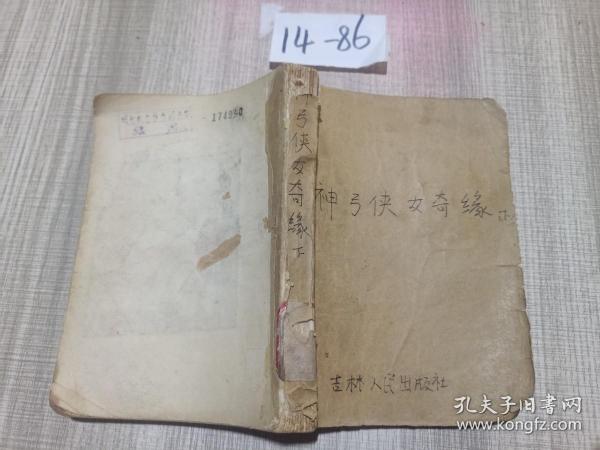 14-86
174950
神弓侠女奇缘下
神弓侠女奇缘下
吉林人民出版社
孔夫子旧书网
www.kongfz.com